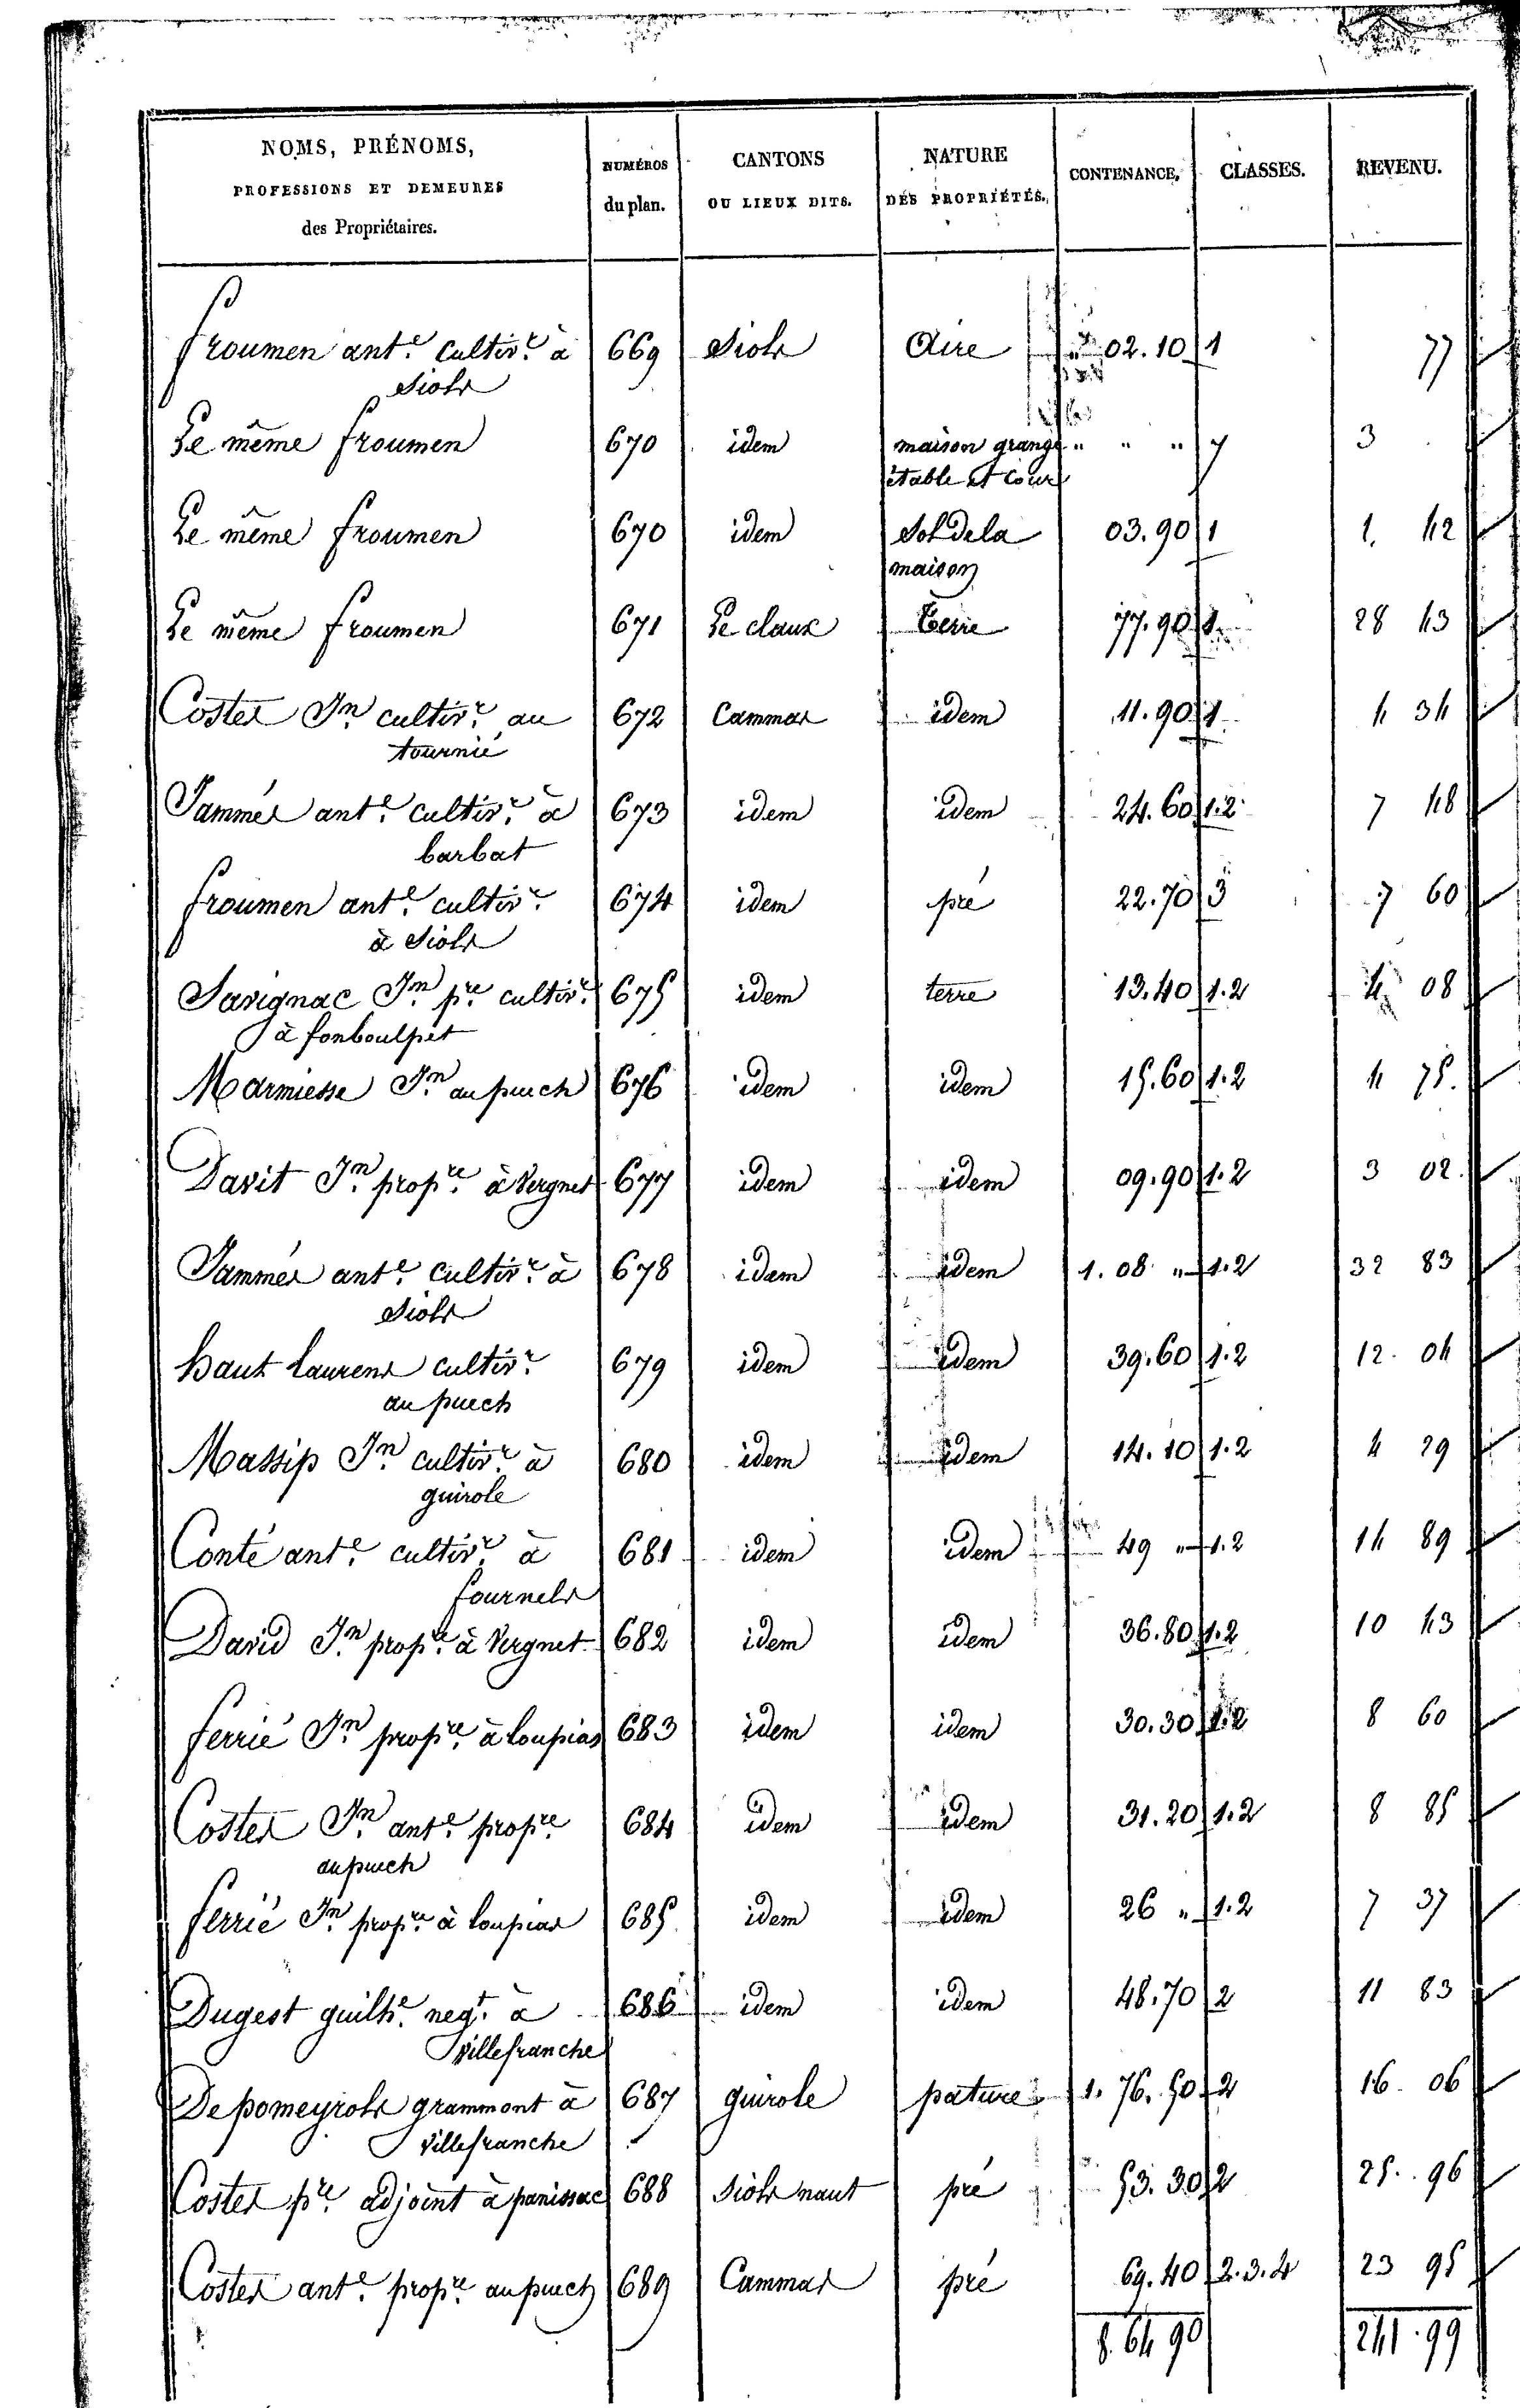 NOMS, PRÉNOMS, PROFESSIONS ET DEMEURES des Propriétaires. NUMÉROS du plan. CANTONS OU LIEUX DITS. NATURE DES PROPRIÉTÉS. CONTENANCE. CLASSES. REVENU.
froumen ant.e cultiv.r à 669 Siols Aire 02.10 1 77
Siols
Le même froumen 670 idem maison grange " " " 7 3
étable et cour
Le même froumen 670 idem Sol de la 03.90 1 1. 42
maison
Le même froumen 671 Le claux Terre 77.90 1 28 43
Costes J.n cultiv.r au 672 Cammas idem 11.90 1 4 34
tournié
Jammes ant.e cultiv.r à 673 idem idem 24.60 1.2 7 48
barbat
froumen ant.e cultiv.r 674 idem pré 22.70 3 7 60
à Siols
Savignac J.n p.re cultiv.r 675 idem terre 13.40 1.2 4 08
à fonboulpet
Marmiesse J.n au puech 676 idem idem 15.60 1.2 4 75.
Davit J.n prop.re à Vergnet 677 idem idem 09.90 1.2 3 02.
Jammes ant.e cultiv.r à 678 idem idem 1. 08 " 1.2 32 83
Siols
haut Laurens cultiv.r 679 idem idem 39.60 1.2 12. 04
au puech
Massip J.n cultiv.r à 680 idem idem 14.10 1.2 4 29
guirole
Conté ant.e cultiv.r à 681 idem idem 49 " 1.2 14 89
fournels
David J.n prop.re à Vergnet 682 idem idem 36.80 1.2 10 43
ferrié J.n prop.re à loupias 683 idem idem 30.30 1.2 8 60
Costes J.n ant.e prop.re 684 idem idem 31.20 1.2 8 85
au puech
ferrié J.n prop.re à loupias 685 idem idem 26 " 1.2 7 37
Dugest guilh.e neg.t à 686 idem idem 48.70 2 11 83
villefranche
De pomeyrols grammont à 687 guirole pature 1. 76. 50 2 16. 06
villefranche
Costes p.re adjoint à panissac 688 Siols naut pré 53.30 2 25. 96
Costes ant.e prop.re au puech 689 Cammas pré 69.40 2.3.4 23 95
8. 64 90 241.99